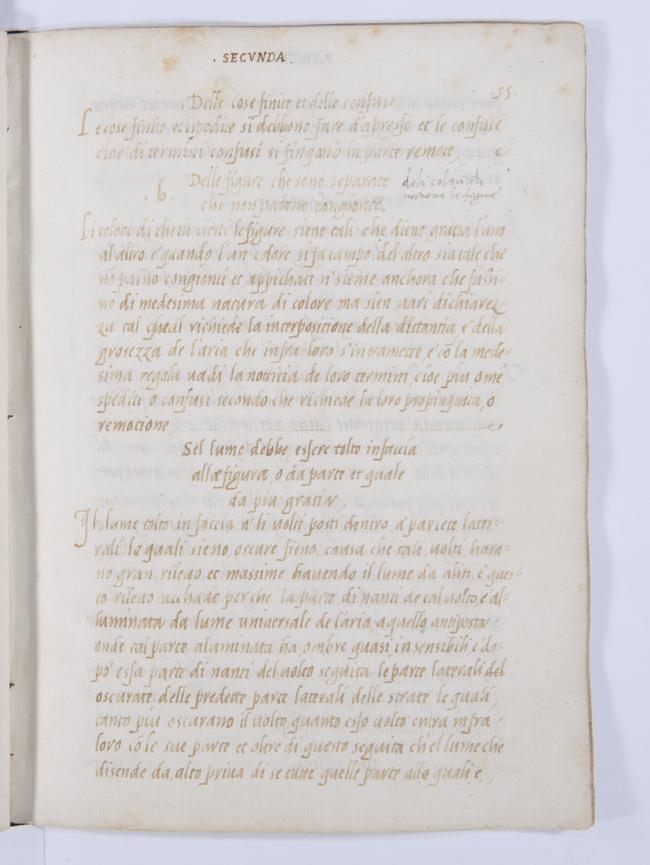 . SECVNDA .
55.
Delle cose finite et delle confuse
Le cose finite et ispedite si debbono fare d'apresso et le confuse
cioe di termini confusi si fingono in parte remote,
Delle figure che sono separate
.6.
che non paiono congionte
Li colori di che tu vesti le figure sieno tali che dieno gratia l'uno
al altro e quando l'un colore si fa campo del altro sia tale che
nō paino congionti et appichati n'sieme anchora che fussi-
no di medesima natura di colore ma sien uari di chiarez-
za tal qual richiede la interpositione della distantia e della
grosezza de l'aria che infra loro s'intramette e cō la mede-
sima regola uadi la notitia de loro termini cioe piu o mē
spediti, o confusi secondo che richiede la loro propinquità, o
remotione,
Sel lume debbe essere tolto in faccia
alla figura o da parte et quale
da piu gratia,
Il lume tolto in faccia a' li uolti posti dentro a' pariete late-
rali le quali sieno oscure fieno causa che tali uolti hara-
no gran rileuo et massime hauendo il lume da alti, e ques-
to rileuo acchade perche la parte di nanti de tal uolto e al-
luminata da lume uniuersale de l'aria a quello antiposta
onde tal parte aluminata ha ombre quasi insensibili e do-
po' essa parte di nanti del uolto seguita le parte laterali del
oscurate, delle predette parte laterali delle strate le quali,
tanto piu oscurano il uolto quanto esso uolto entra infra
loro cō le sue parte et oltre di questo seguita ch'el lume che
disende da alto priua di se tutte quelle parte allo quali e,